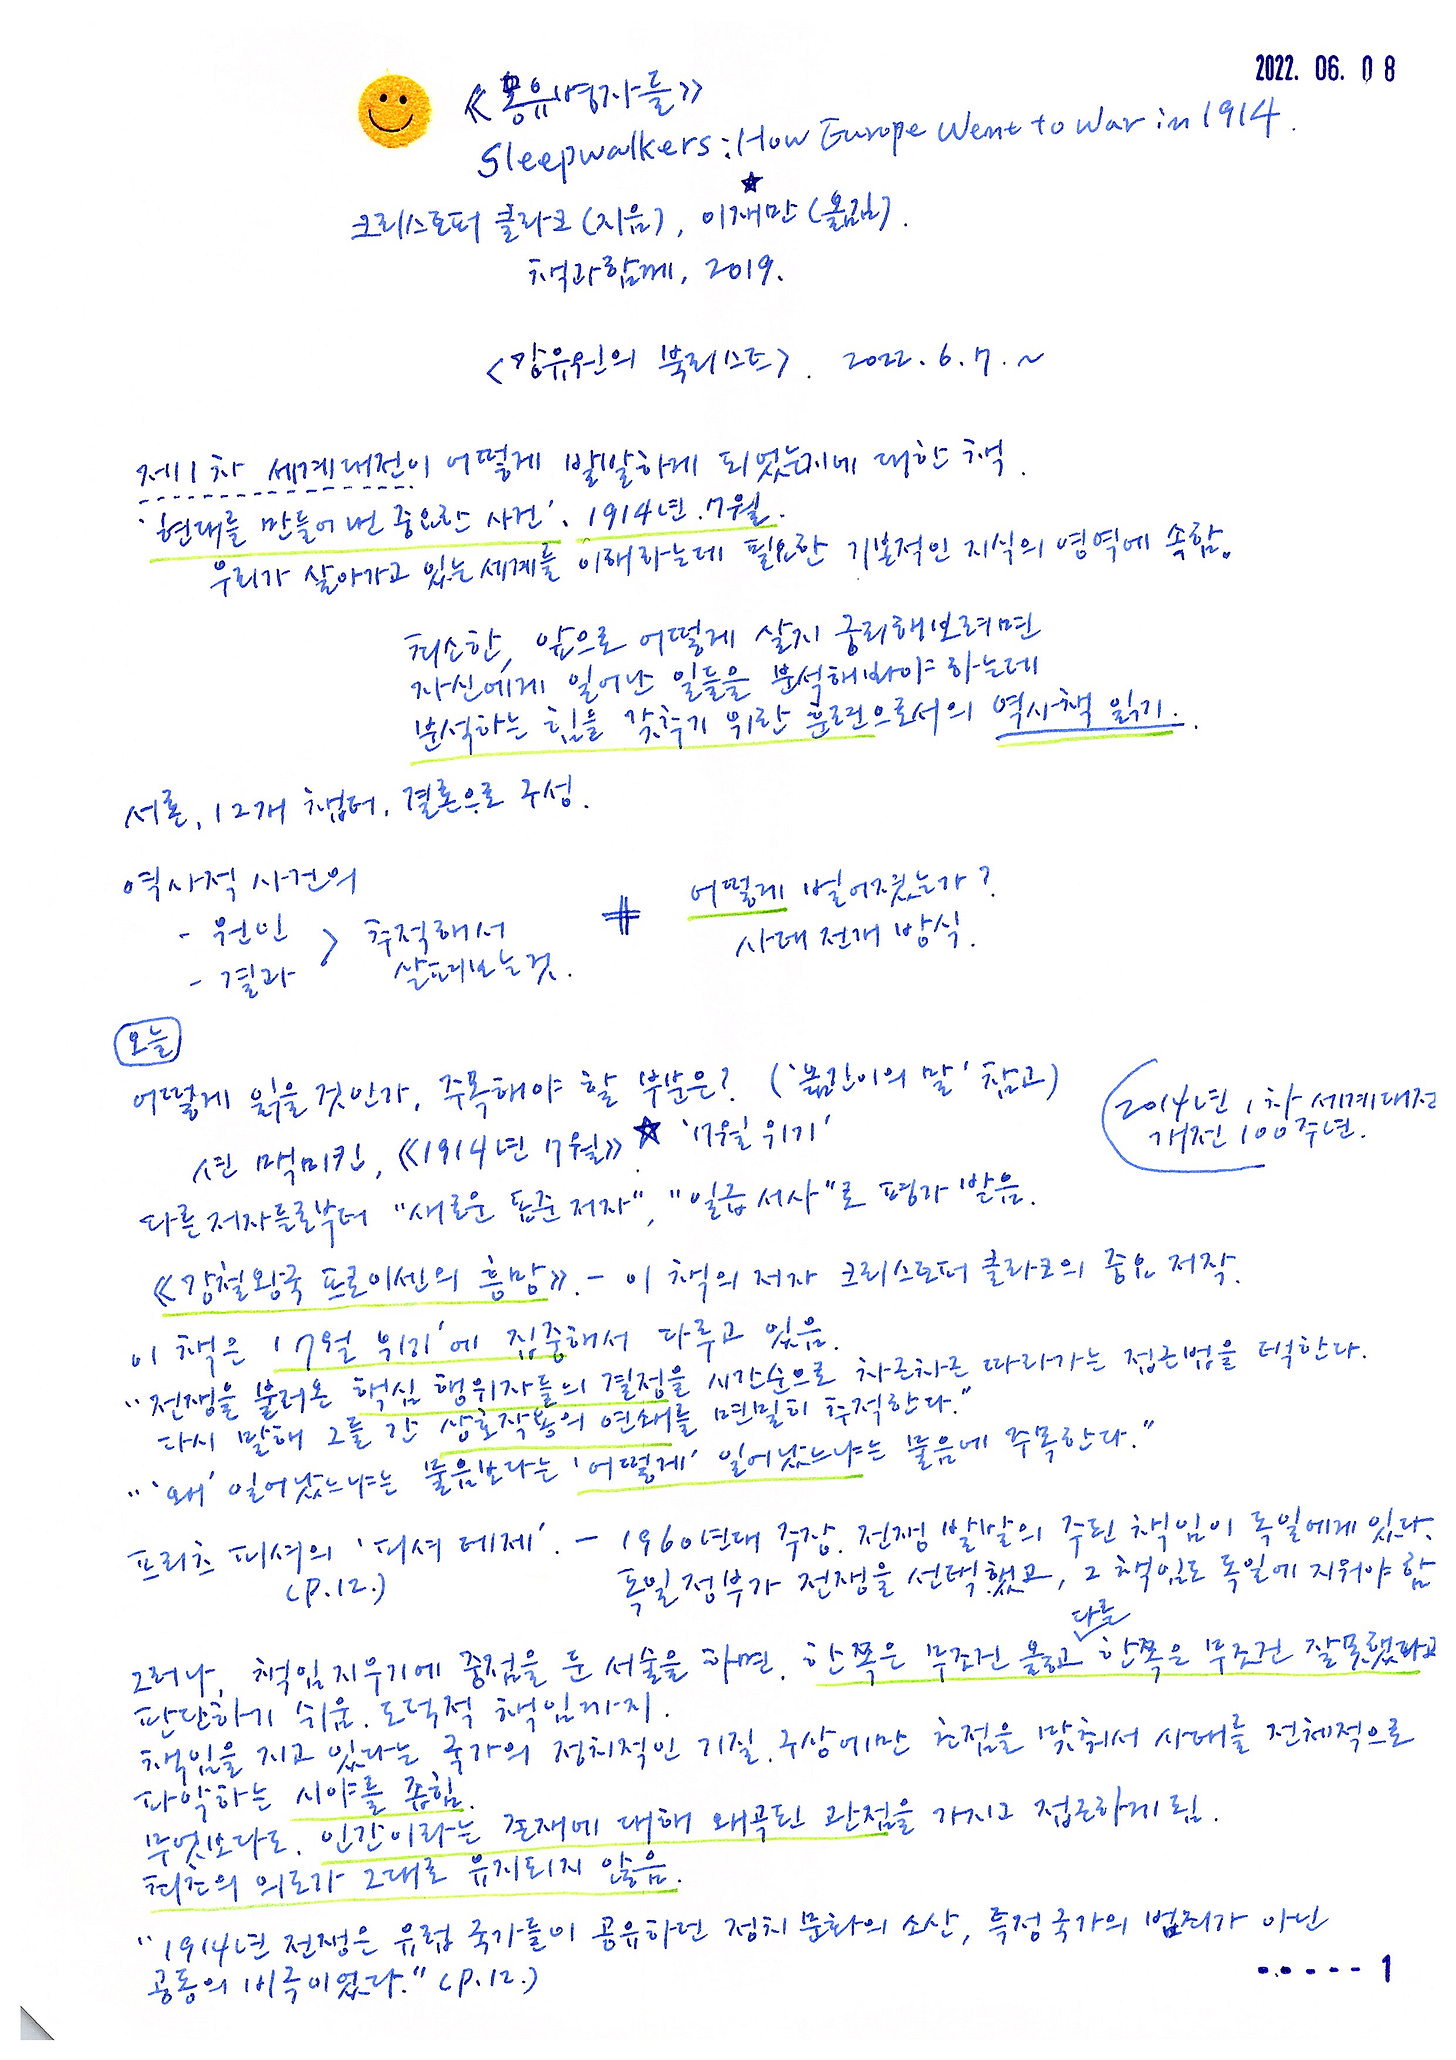 2022. 06. 08
《몽유병자들》
Sleepwalkers : How Europe Went to War in 1914.
크리스토퍼 클라크(지음), 이재만(옮김).
책과함께, 2019.
<강유원의 북리스트>. 2022. 6. 7. ~
제1차 세계대전이 어떻게 발발하게 되었는지에 대한 책.
'현대를 만들어 낸 중요한 사건', 1914년 7월.
우리가 살아가고 있는 세계를 이해하는데 필요한 기본적인 지식의 영역에 속함.
최소한, 앞으로 어떻게 살지 궁리해보려면
자신에게 일어난 일들을 분석해봐야 하는데
분석하는 힘을 갖추기 위한 훈련으로서의 역사책 읽기.
서론, 12개 챕터, 결론으로 구성.
역사적 사건의
- 원인
- 결과
> 추적해서
살펴보는 것.
≠
어떻게 벌어졌는가?
사태 전개 방식.
오늘
어떻게 읽을 것인가, 주목해야 할 부분은? ('옮긴이의 말' 참고)
2014년 1차 세계대전
개전 100주년.
션 맥미킨, 《1914년 7월》 ★ '7월 위기'
다른 저자들로부터 "새로운 표준 저자", "일급 서사"로 평가 받음.
《강철왕국 프로이센의 흥망》. - 이 책의 저자 크리스토퍼 클라크의 중요 저작.
이 책은 '7월 위기'에 집중해서 다루고 있음.
"전쟁을 불러온 핵심 행위자들의 결정을 시간순으로 차근차근 따라가는 접근법을 택한다.
다시 말해 그들 간 상호작용의 연쇄를 면밀히 추적한다."
"'왜' 일어났느냐는 물음보다는 '어떻게' 일어났느냐는 물음에 주목한다."
프리츠 피셔의 '피셔 테제'. - 1960년대 주장. 전쟁 발발의 주된 책임이 독일에게 있다.
(p.12.)
독일 정부가 전쟁을 선택했고, 그 책임도 독일에 지워야 함
그러나, 책임 지우기에 중점을 둔 서술을 하면, 한쪽은 무조건 옳고 다른 한쪽은 무조건 잘못했다고
판단하기 쉬움. 도덕적 책임까지.
책임을 지고 있다는 국가의 정치적인 기질, 구상에만 초점을 맞춰서 사태를 전체적으로
파악하는 시야를 좁힘.
무엇보다도, 인간이라는 존재에 대해 왜곡된 관점을 가지고 접근하게 됨.
최초의 의도가 그대로 유지되지 않음.
"1914년 전쟁은 유럽 국가들이 공유하던 정치 문화의 소산, 특정 국가의 범죄가 아닌
공동의 비극이었다." (p.12.)
------ 1